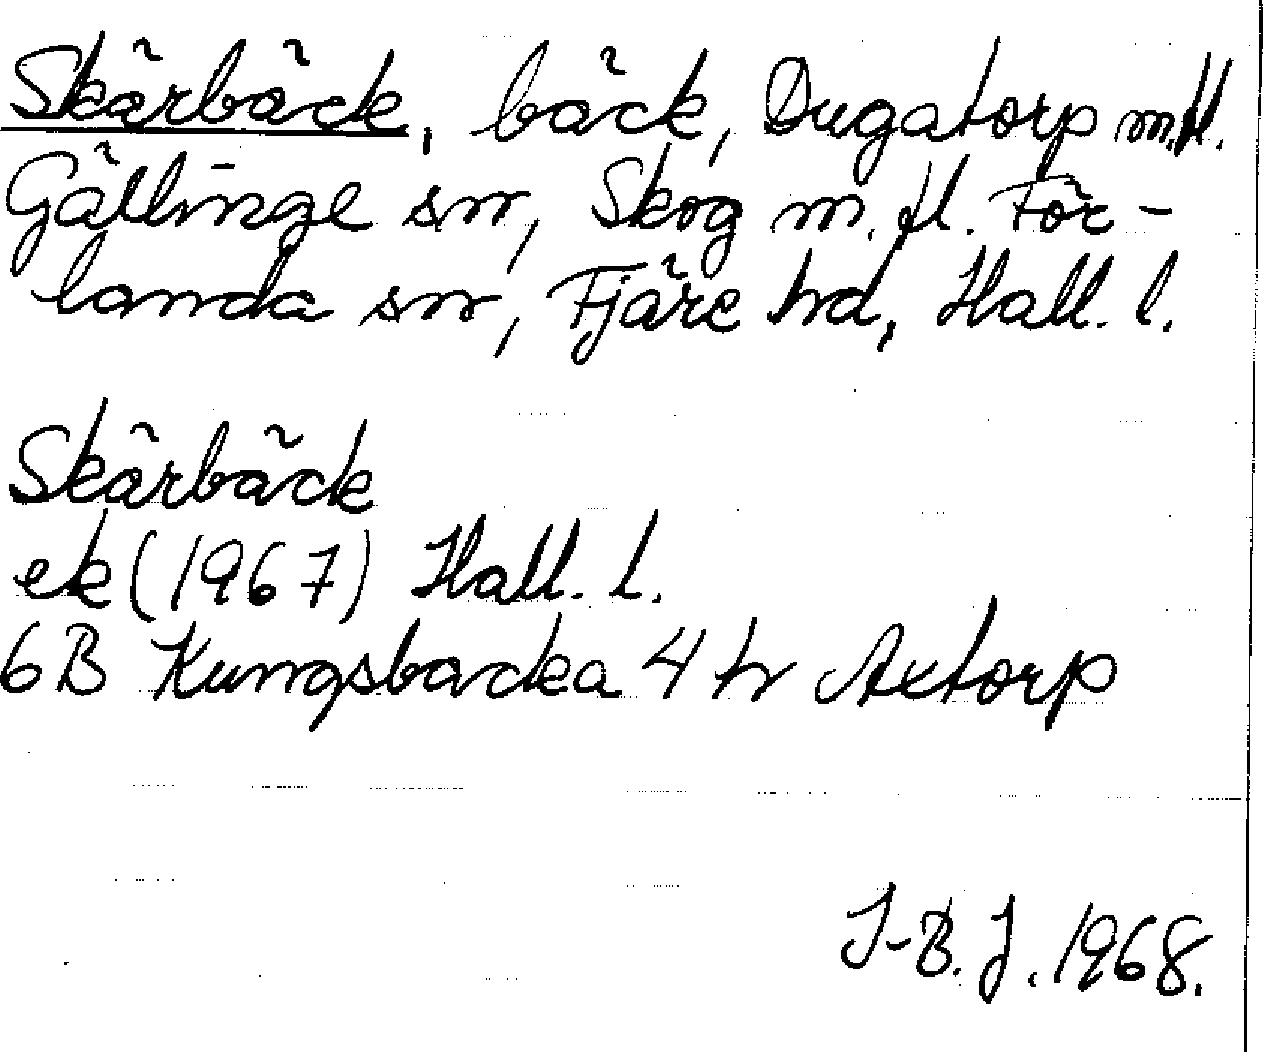 Skärbäck, bäck, Dugatorp m.fl.
Gällinge sn, Skog m.fl. För-
landa sn, Fjäre hd, Hall. l.
Skärbäck
ek (1967) Hall. l.
6B Kungsbacka 4 h Axtorp
I-B. J. 1968.